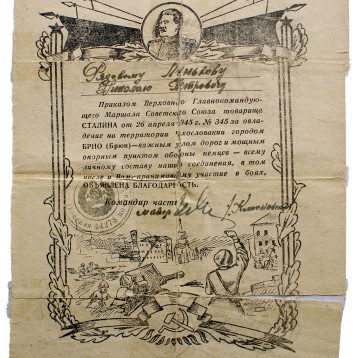 Рядовому Минькову
Николаю Петровичу
Приказом Верховного Главнокомандую-
щего Маршала Советского Союза товарища
СТАЛИНА от 26 апреля 1945 г. № 345 за овла-
дение на территории Чехословакии городом
БРНО (Брюн)—важным узлом дорог и мощным
опорным пунктом обороны немцев — всему
личному составу нашего соединения, в том
числе и Вам, принимавшему участие в боях,
ОБЪЯВЛЕНА БЛАГОДАРНОСТЬ.
Командир части
майор